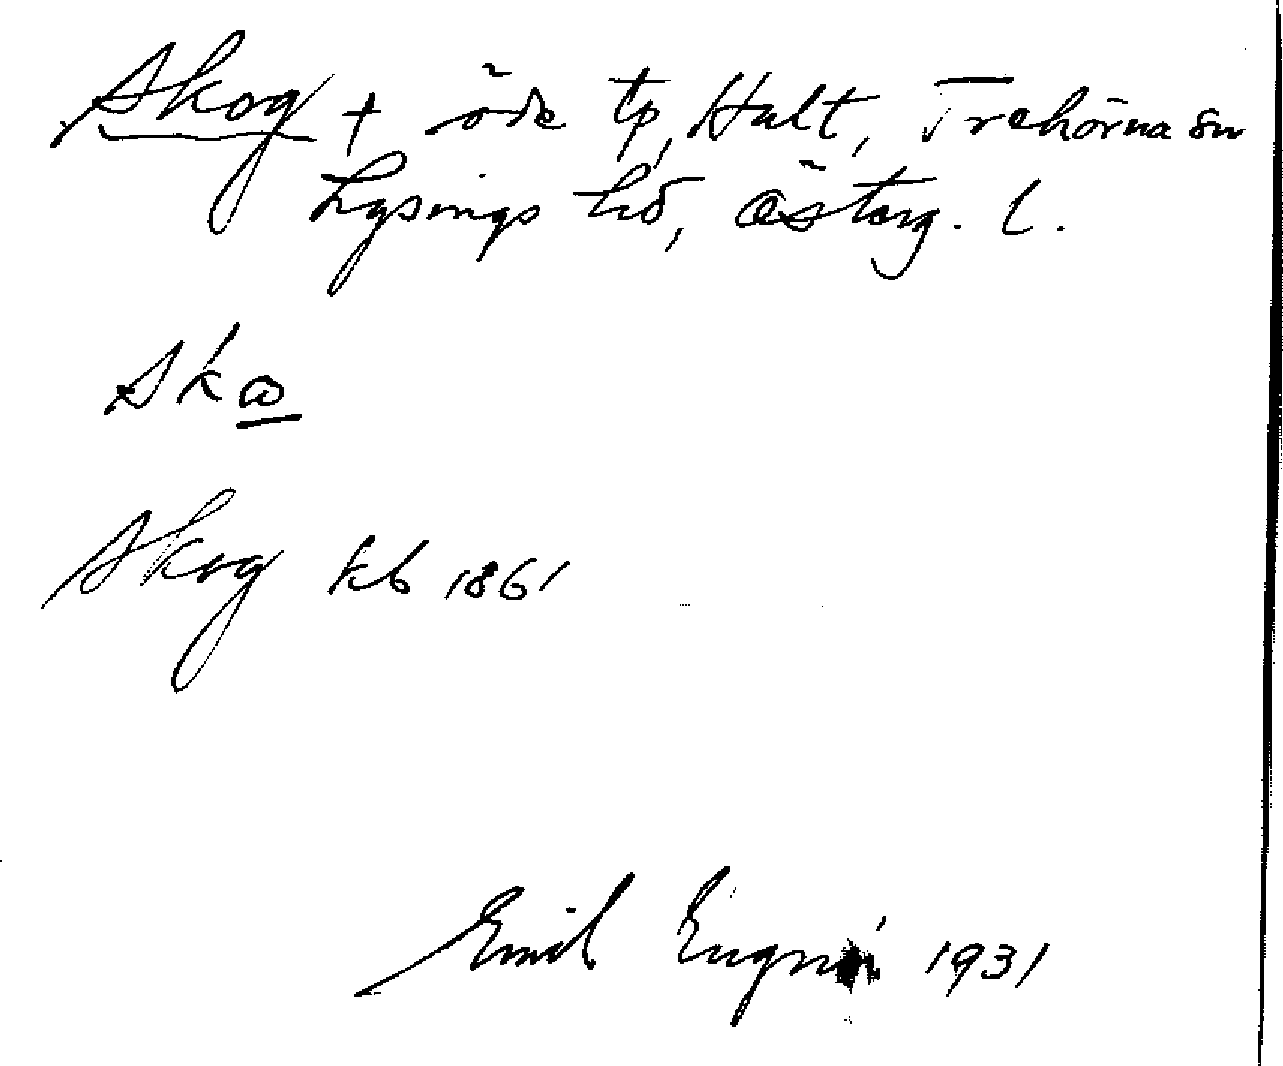 Skog + öde tp, Hult, Trehörna sn
Lysings hd, Österg. l.
Skω
Skog kb 1861
Emil 1931